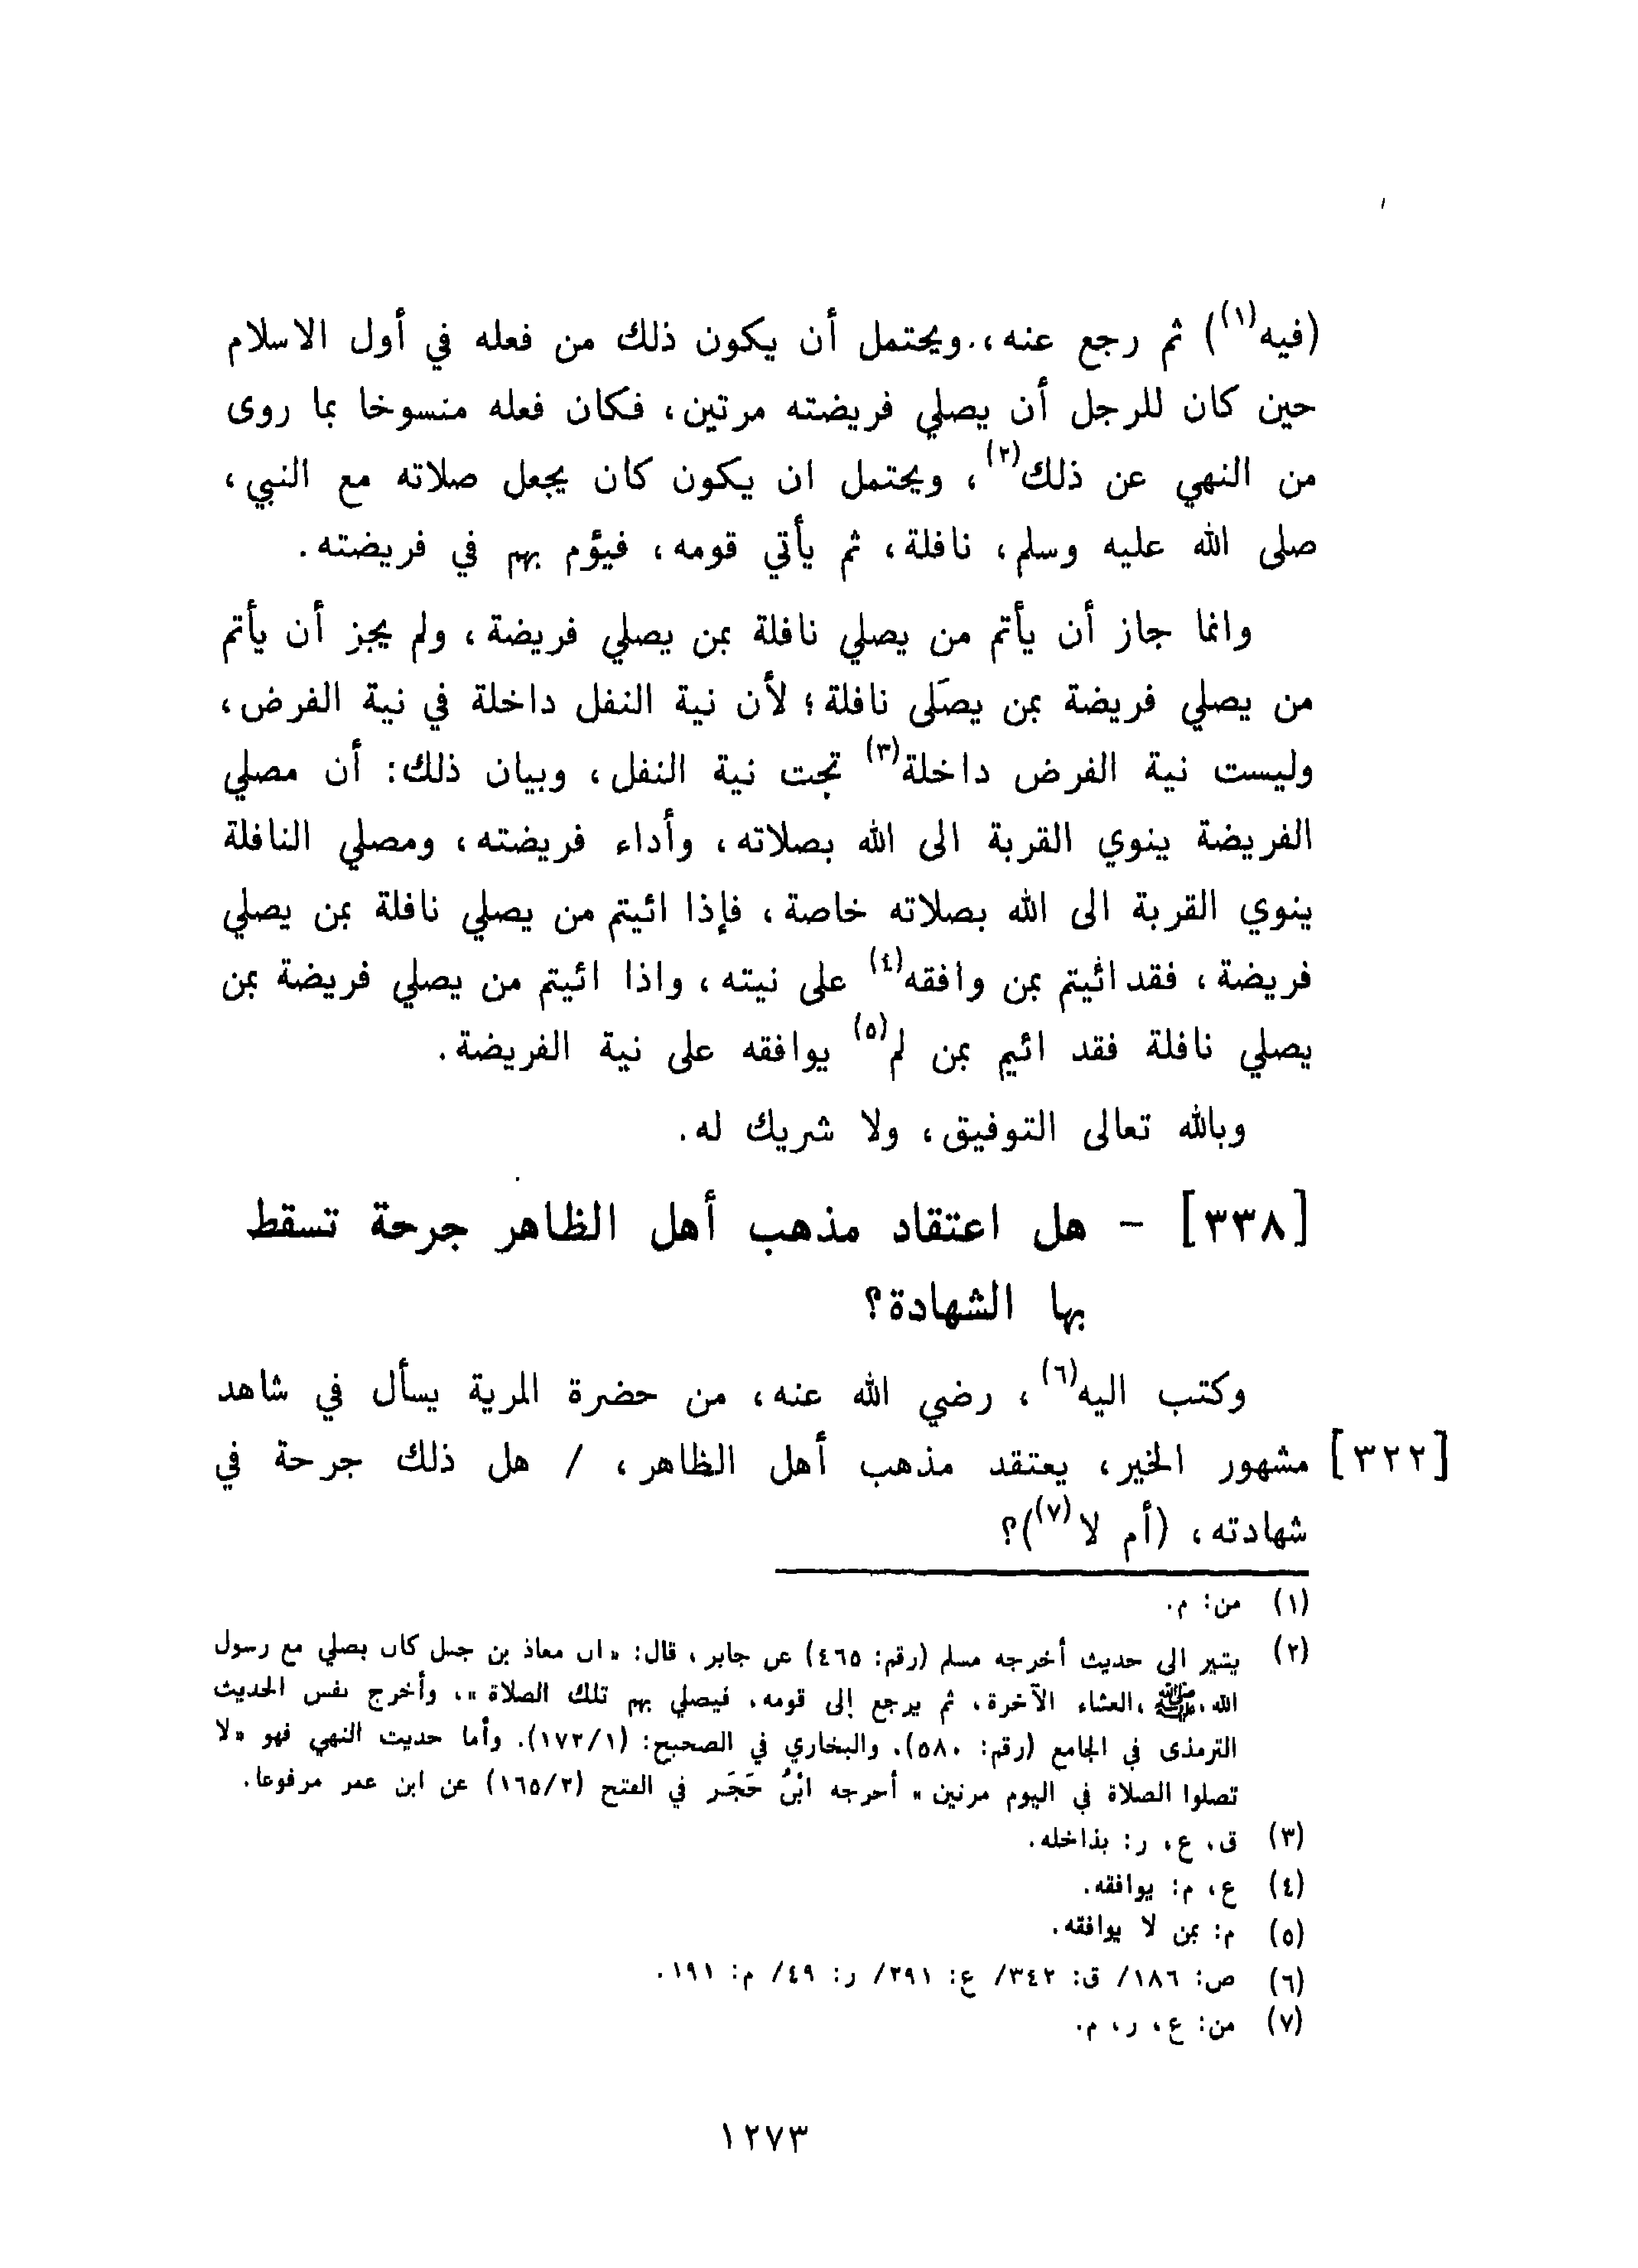 (فيه(١)) ثم رجع عنه، ويحتمل أن يكون ذلك من فعله في أول الاسلام
حين كان للرجل أن يصلي فريضته مرتين، فكان فعله منسوخا بما روى
من النهي عن ذلك(٢)، ويحتمل ان يكون كان يجعل صلاته مع النبي،
صلى الله عليه وسلم، نافلة، ثم يأتي قومه، فيؤم بهم في فريضته.
وانما جاز أن يأتم من يصلي نافلة بمن يصلي فريضة، ولم يجز أن يأتم
من يصلي فريضة بمن يصلى نافلة؛ لأن نية النفل داخلة في نية الفرض،
وليست نية الفرض داخلة(٣) تحت نية النفل، وبيان ذلك: أن مصلي
الفريضة ينوي القربة الى الله بصلاته، وأداء فريضته، ومصلي النافلة
ينوي القربة الى الله بصلاته خاصة، فإذا ائيتم من يصلي نافلة بمن يصلي
فريضة، فقد ائيتم بمن وافقه(٤) على نيته، واذا ائيتم من يصلي فريضة بمن
يصلي نافلة فقد ائيم بمن لم(٥) يوافقه على نية الفريضة.
وبالله تعالى التوفيق، ولا شريك له.
[٣٣٨] – هل اعتقاد مذهب أهل الظاهر جرحة تسقط
بها الشهادة؟
وكتب اليه(٦)، رضي الله عنه، من حضرة المرية يسأل في شاهد
[٣٢٢] مشهور الخير، يعتقد مذهب أهل الظاهر، / هل ذلك جرحة في
شهادته، (أم لا(٧))؟
(١) من: م.
(٢) يشير الى حديث أخرجه مسلم (رقم: ٤٦٥) عن جابر، قال: «ان معاذ بن جبل كان يصلي مع رسول
الله، ﷺ، العشاء الآخرة، ثم يرجع إلى قومه، فيصلي بهم تلك الصلاة»، وأخرج نفس الحديث
الترمذى في الجامع (رقم: ٥٨٠)، والبخاري في الصحيح: (١٧٢/١). وأما حديث النهي فهو «لا
تصلوا الصلاة في اليوم مرتين» أخرجه ابْنُ حَجَر في الفتح (١٦٥/٢) عن ابن عمر مرفوعا.
(٣) ق، ع، ر: بذاخله.
(٤) ع، م: يوافقه.
(٥) م: بمن لا يوافقه.
(٦) ص: ١٨٦/ ق: ٣٤٢/ ع: ٢٩١/ ر: ٤٩/ م: ١٩١.
(٧) من: ع، ر، م.
١٢٧٣